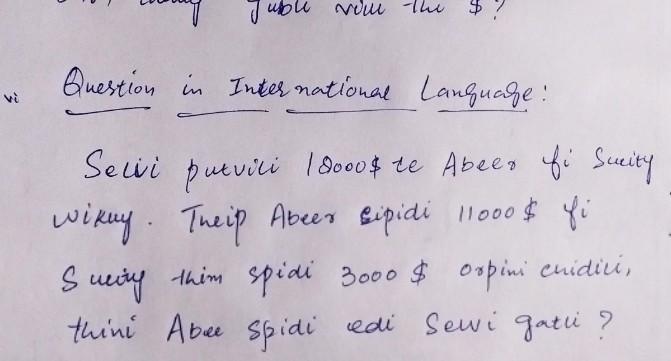 the $?
vi Question in International Language:
Selvi putvili 18000$ te Abeer fi Sucity
wikuy. Theip Abeer sipidi 11000$ fi
Sucity thim spidi 3000$ orpini cuidili,
thini Abee spidi edi Sewi gatli?